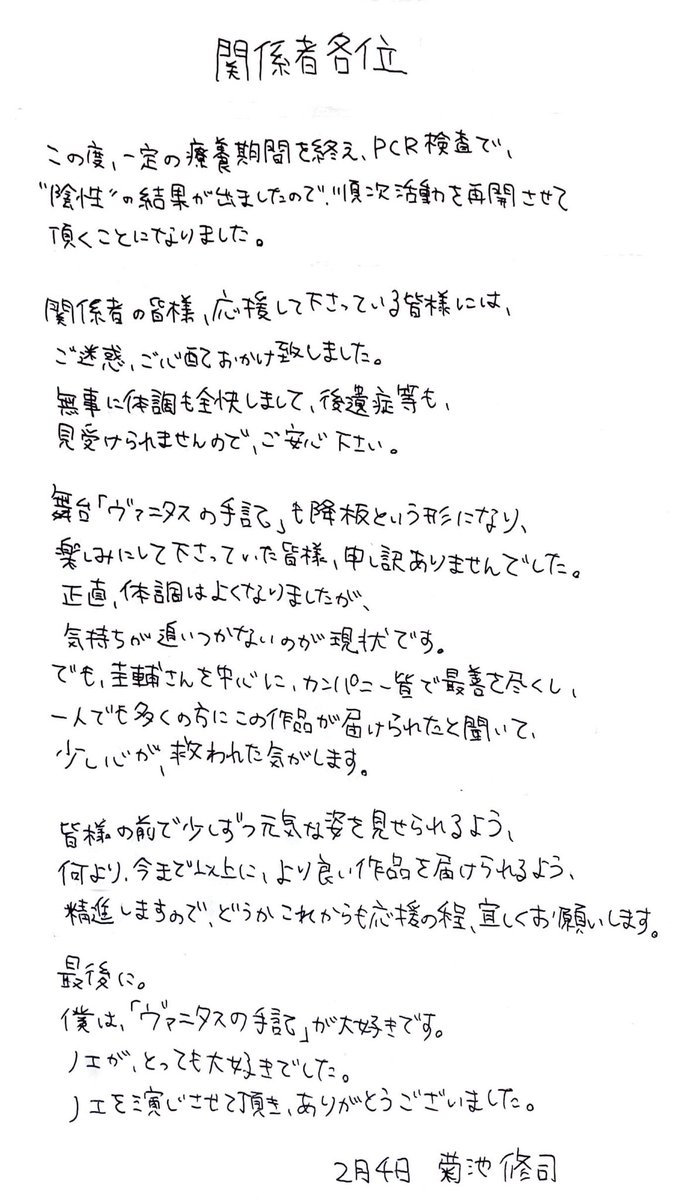 関係者各位
この度、一定の療養期間を終え、PCR検査で、
"陰性"の結果が出ましたので、順次活動を再開させて
頂くことになりました。
関係者の皆様、応援して下さっている皆様には、
ご迷惑、ご心配おかけ致しました。
無事に体調も全快しまして、後遺症等も、
見受けられませんので、ご安心下さい。
舞台「ヴァニタスの手記」も降板という形になり、
楽しみにして下さっていた皆様、申し訳ありませんでした。
正直、体調はよくなりましたが、
気持ちが追いつかないのが現状です。
でも、圭輔さんを中心に、カンパニー皆で最善を尽くし、
一人でも多くの方にこの作品が届けられたと聞いて、
少し心が、救われた気がします。
皆様の前で少しずつ元気な姿を見せられるよう、
何より、今まで以上に、より良い作品を届けられるよう、
精進しますので、どうかこれからも応援の程、宜しくお願いします。
最後に。
僕は、「ヴァニタスの手記」が大好きです。
ノエが、とっても大好きでした。
ノエを演じさせて頂き、ありがとうございました。
2月4日 菊池修司